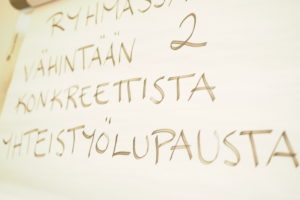 RYHMÄSSÄ
VÄHINTÄÄN 2
KONKREETTISTA
YHTEISTYÖLUPAUSTA